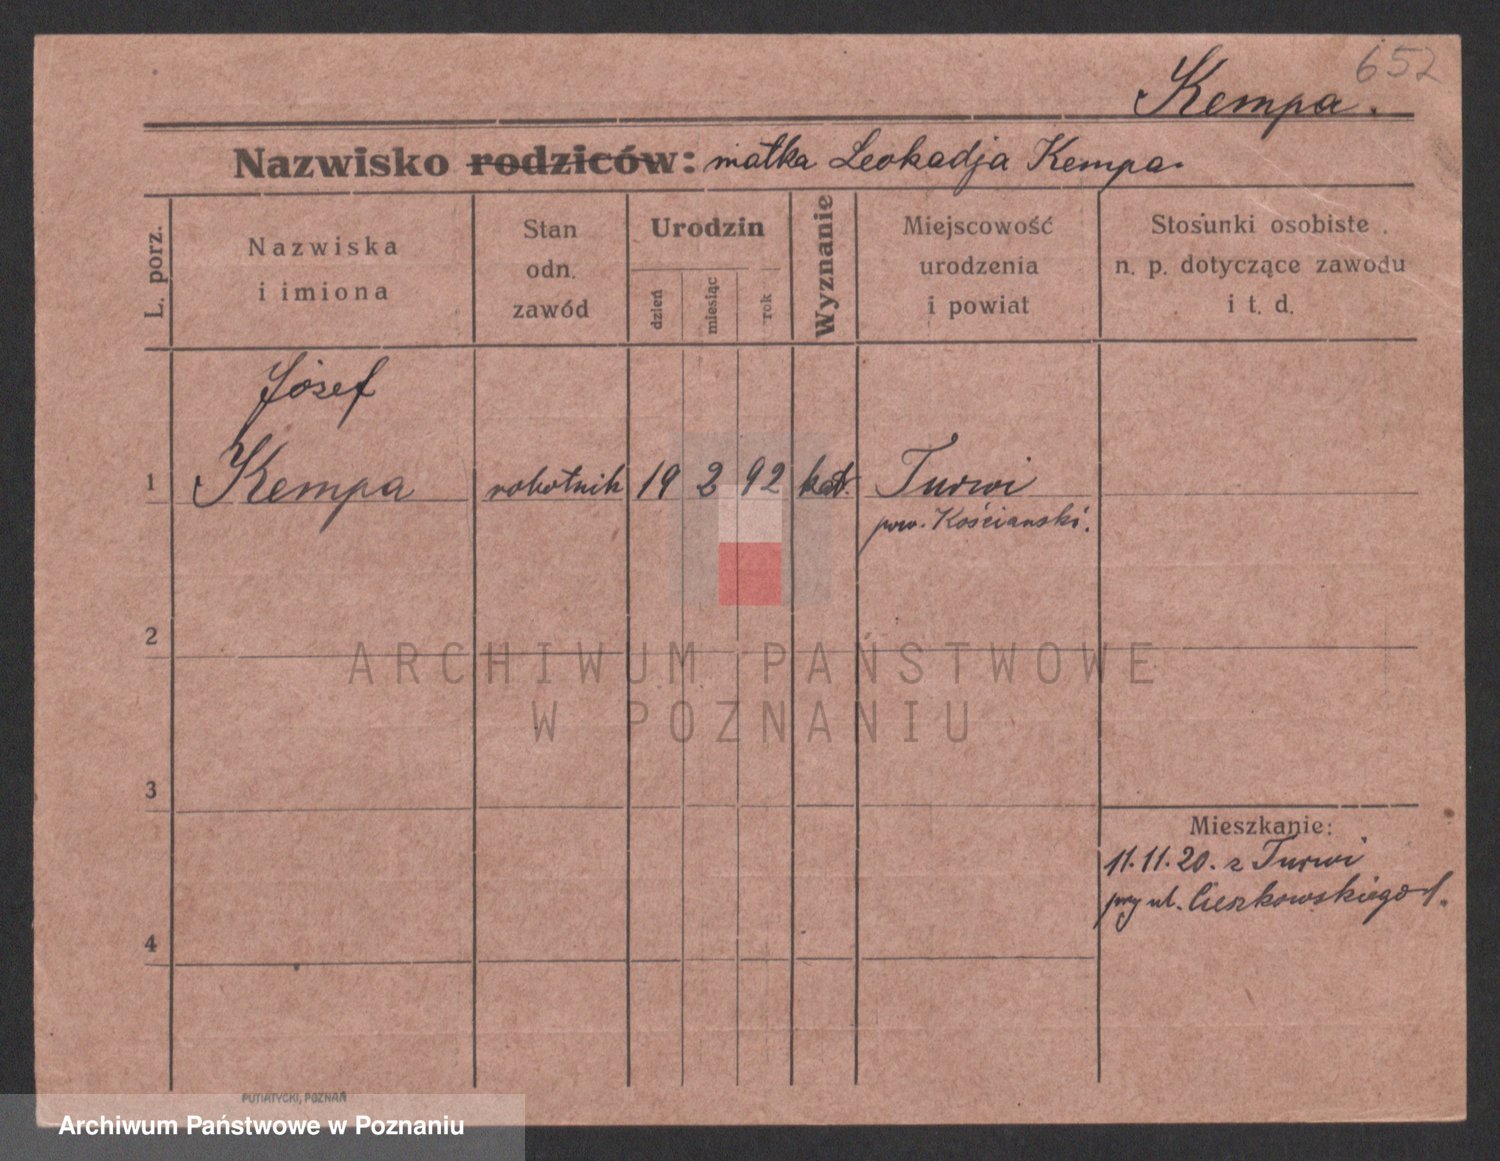 652
Kempa.
Nazwisko rodziców: matka Leokadja Kempa.
L. porz.
Nazwiska
i imiona
Stan
odn.
zawód
Urodzin
dzień
miesiąc
rok
Wyznanie
Miejscowość
urodzenia
i powiat
Stosunki osobiste
n. p. dotyczące zawodu
i t. d.
Józef
1 Kempa robotnik 19 2 92 kat. Turwi
pow. Kościański.
2
ARCHIWUM PAŃSTWOWE
W POZNANIU
3
Mieszkanie:
11.11.20. z Turwi
przy ul. Cieszkowskiego 1.
4
PUTIATYCKI, POZNAŃ
Archiwum Państwowe w Poznaniu